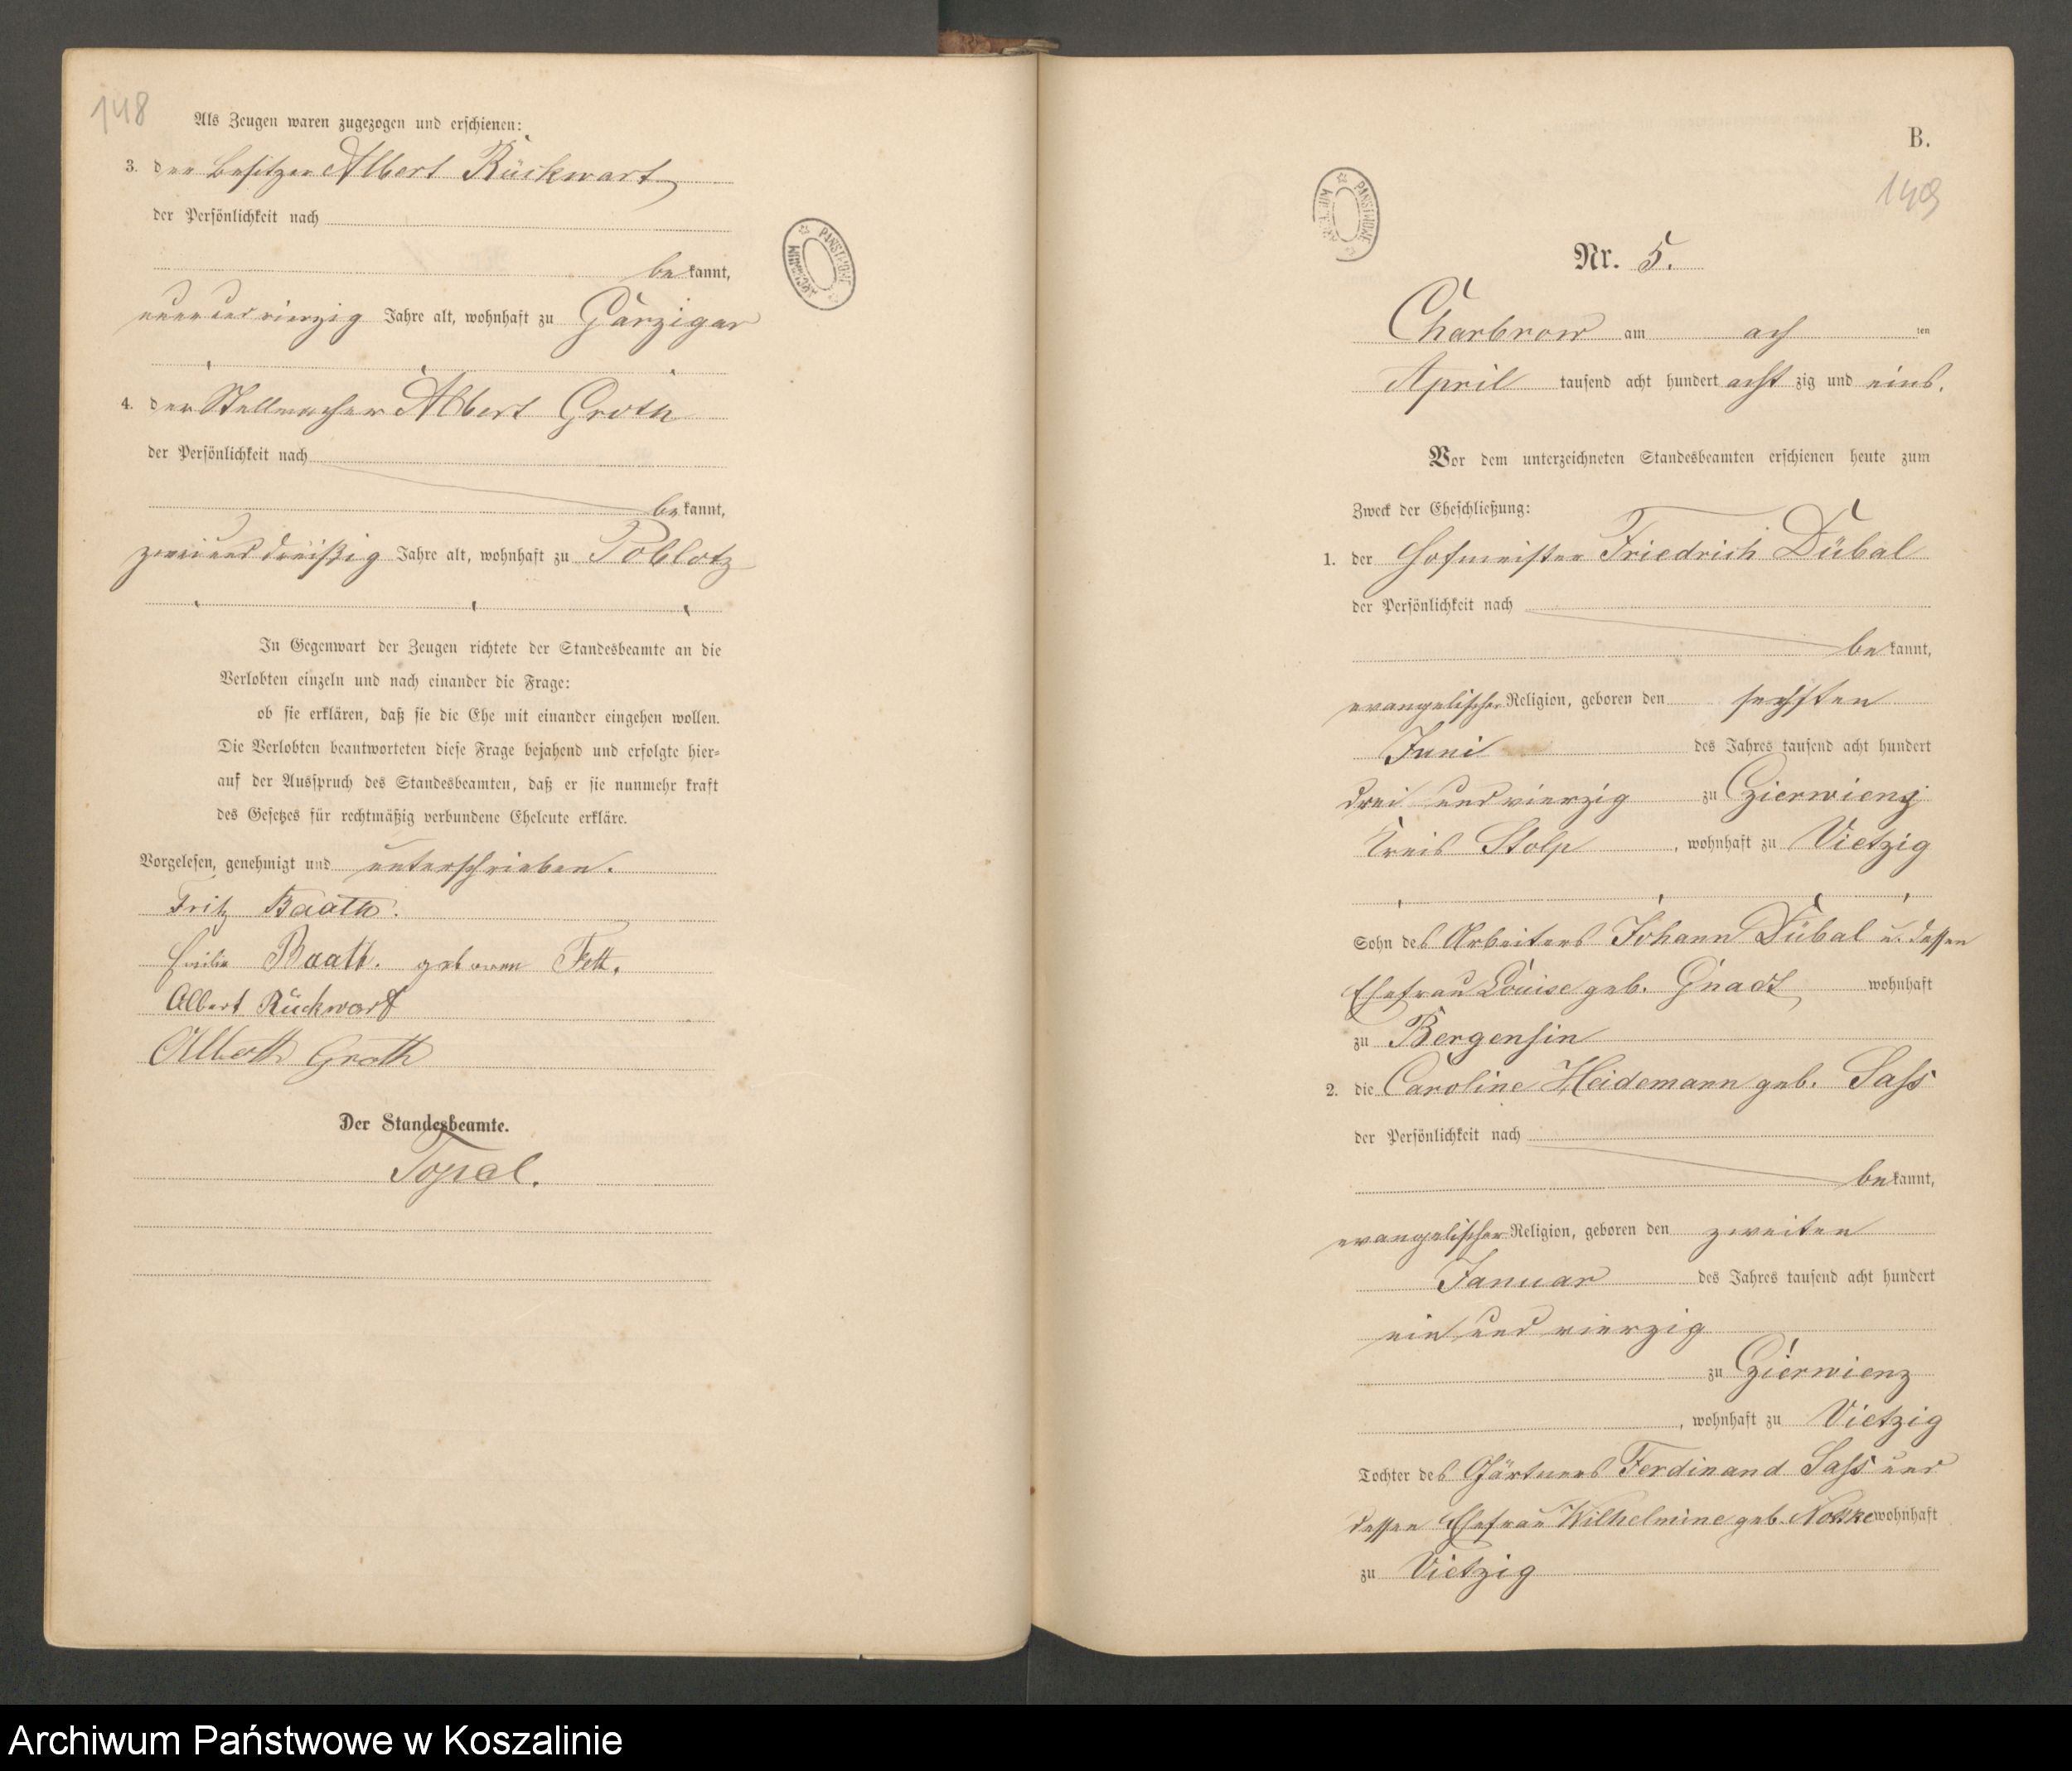 148
Als Zeugen waren zugezogen und erschienen:
3. der Besitzer Albert Rückwart
der Persönlichkeit nach
bekannt,
neun und vierzig Jahre alt, wohnhaft zu Garzigar
4. der Stellmacher Albert Groth
der Persönlichkeit nach
bekannt,
zwei und dreißig Jahre alt, wohnhaft zu Poblotz
In Gegenwart der Zeugen richtete der Standesbeamte an die
Verlobten einzeln und nach einander die Frage:
ob sie erklären, daß sie die Ehe mit einander eingehen wollen.
Die Verlobten beantworteten diese Frage bejahend und erfolgte hier-
auf der Ausspruch des Standesbeamten, daß er sie nunmehr kraft
des Gesetzes für rechtmäßig verbundene Eheleute erkläre.
Vorgelesen, genehmigt und unterschrieben.
Fritz Baath.
Emilie Baath. geboren Fett.
Albert Rückwart
Albert Groth
Der Standesbeamte.
Topal.
ARCHIWUM PAŃSTWOWE
B.
149
ARCHIWUM PAŃSTWOWE
Nr. 5.
Charbrow am ach ten
April tausend acht hundert acht zig und eins.
Vor dem unterzeichneten Standesbeamten erschienen heute zum
Zweck der Eheschließung:
1. der Hofmeister Friedrich Dübal
der Persönlichkeit nach
bekannt,
evangelischer Religion, geboren den sechsten
Juni des Jahres tausend acht hundert
drei und vierzig zu Czierwienz
Kreis Stolp, wohnhaft zu Vietzig
Sohn des Arbeiters Johann Dübal u. dessen
Ehefrau Louise geb. Gnadt wohnhaft
zu Bergensin
2. die Caroline Heidemann geb. Sass
der Persönlichkeit nach
bekannt,
evangelischer Religion, geboren den zweiten
Januar des Jahres tausend acht hundert
ein und vierzig
zu Czierwienz
, wohnhaft zu Vietzig
Tochter des Gärtners Ferdinand Sass und
dessen Ehefrau Wilhelmine geb. wohnhaft
zu Vietzig
Archiwum Państwowe w Koszalinie